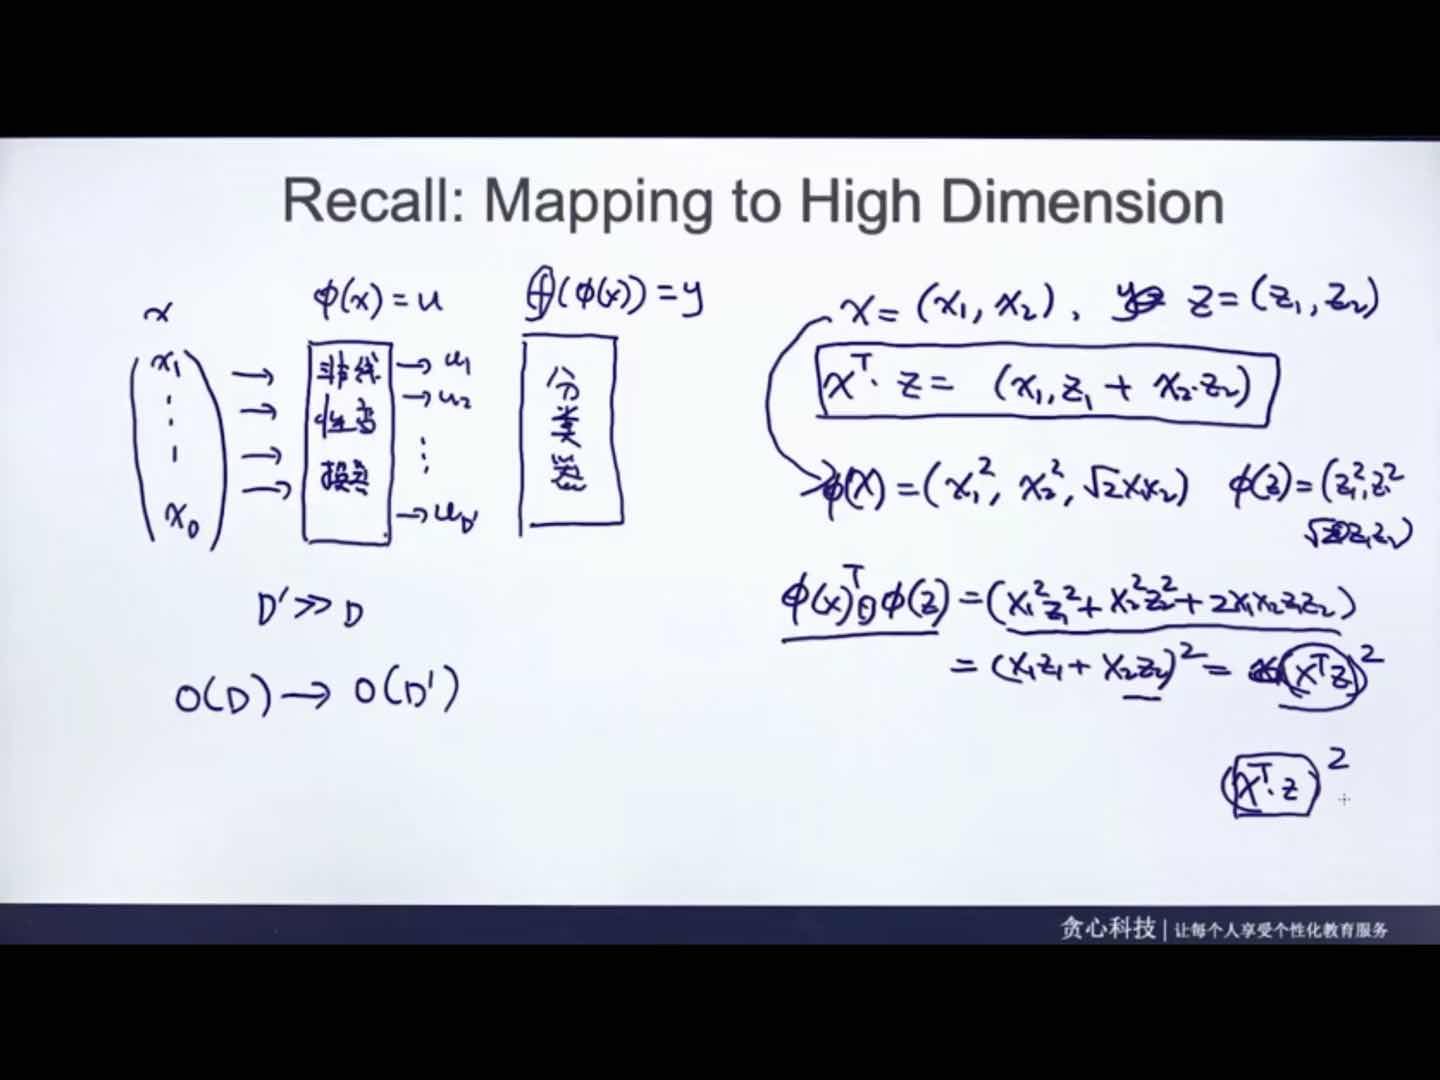 Recall: Mapping to High Dimension
x
x₁
x_D
ϕ(x) = u
非线
性变
换
→ u₁
→ u₂
→ u_D'
f(ϕ(x)) = y
分
类
器
D' >> D
O(D) → O(D')
x = (x₁, x₂), z = (z₁, z₂)
xᵀ· z = (x₁,z₁ + x₂·z₂)
ϕ(x) = (x₁², x₂², √2x₁x₂) ϕ(z) = (z₁², z₂²
√2z₁z₂)
ϕ(x)ᵀϕ(z) = (x₁²z₁² + x₂²z₂² + 2x₁x₂z₁z₂)
= (x₁z₁ + x₂z₂)² = (xᵀz)²
(xᵀ·z)²
贪心科技 | 让每个人享受个性化教育服务